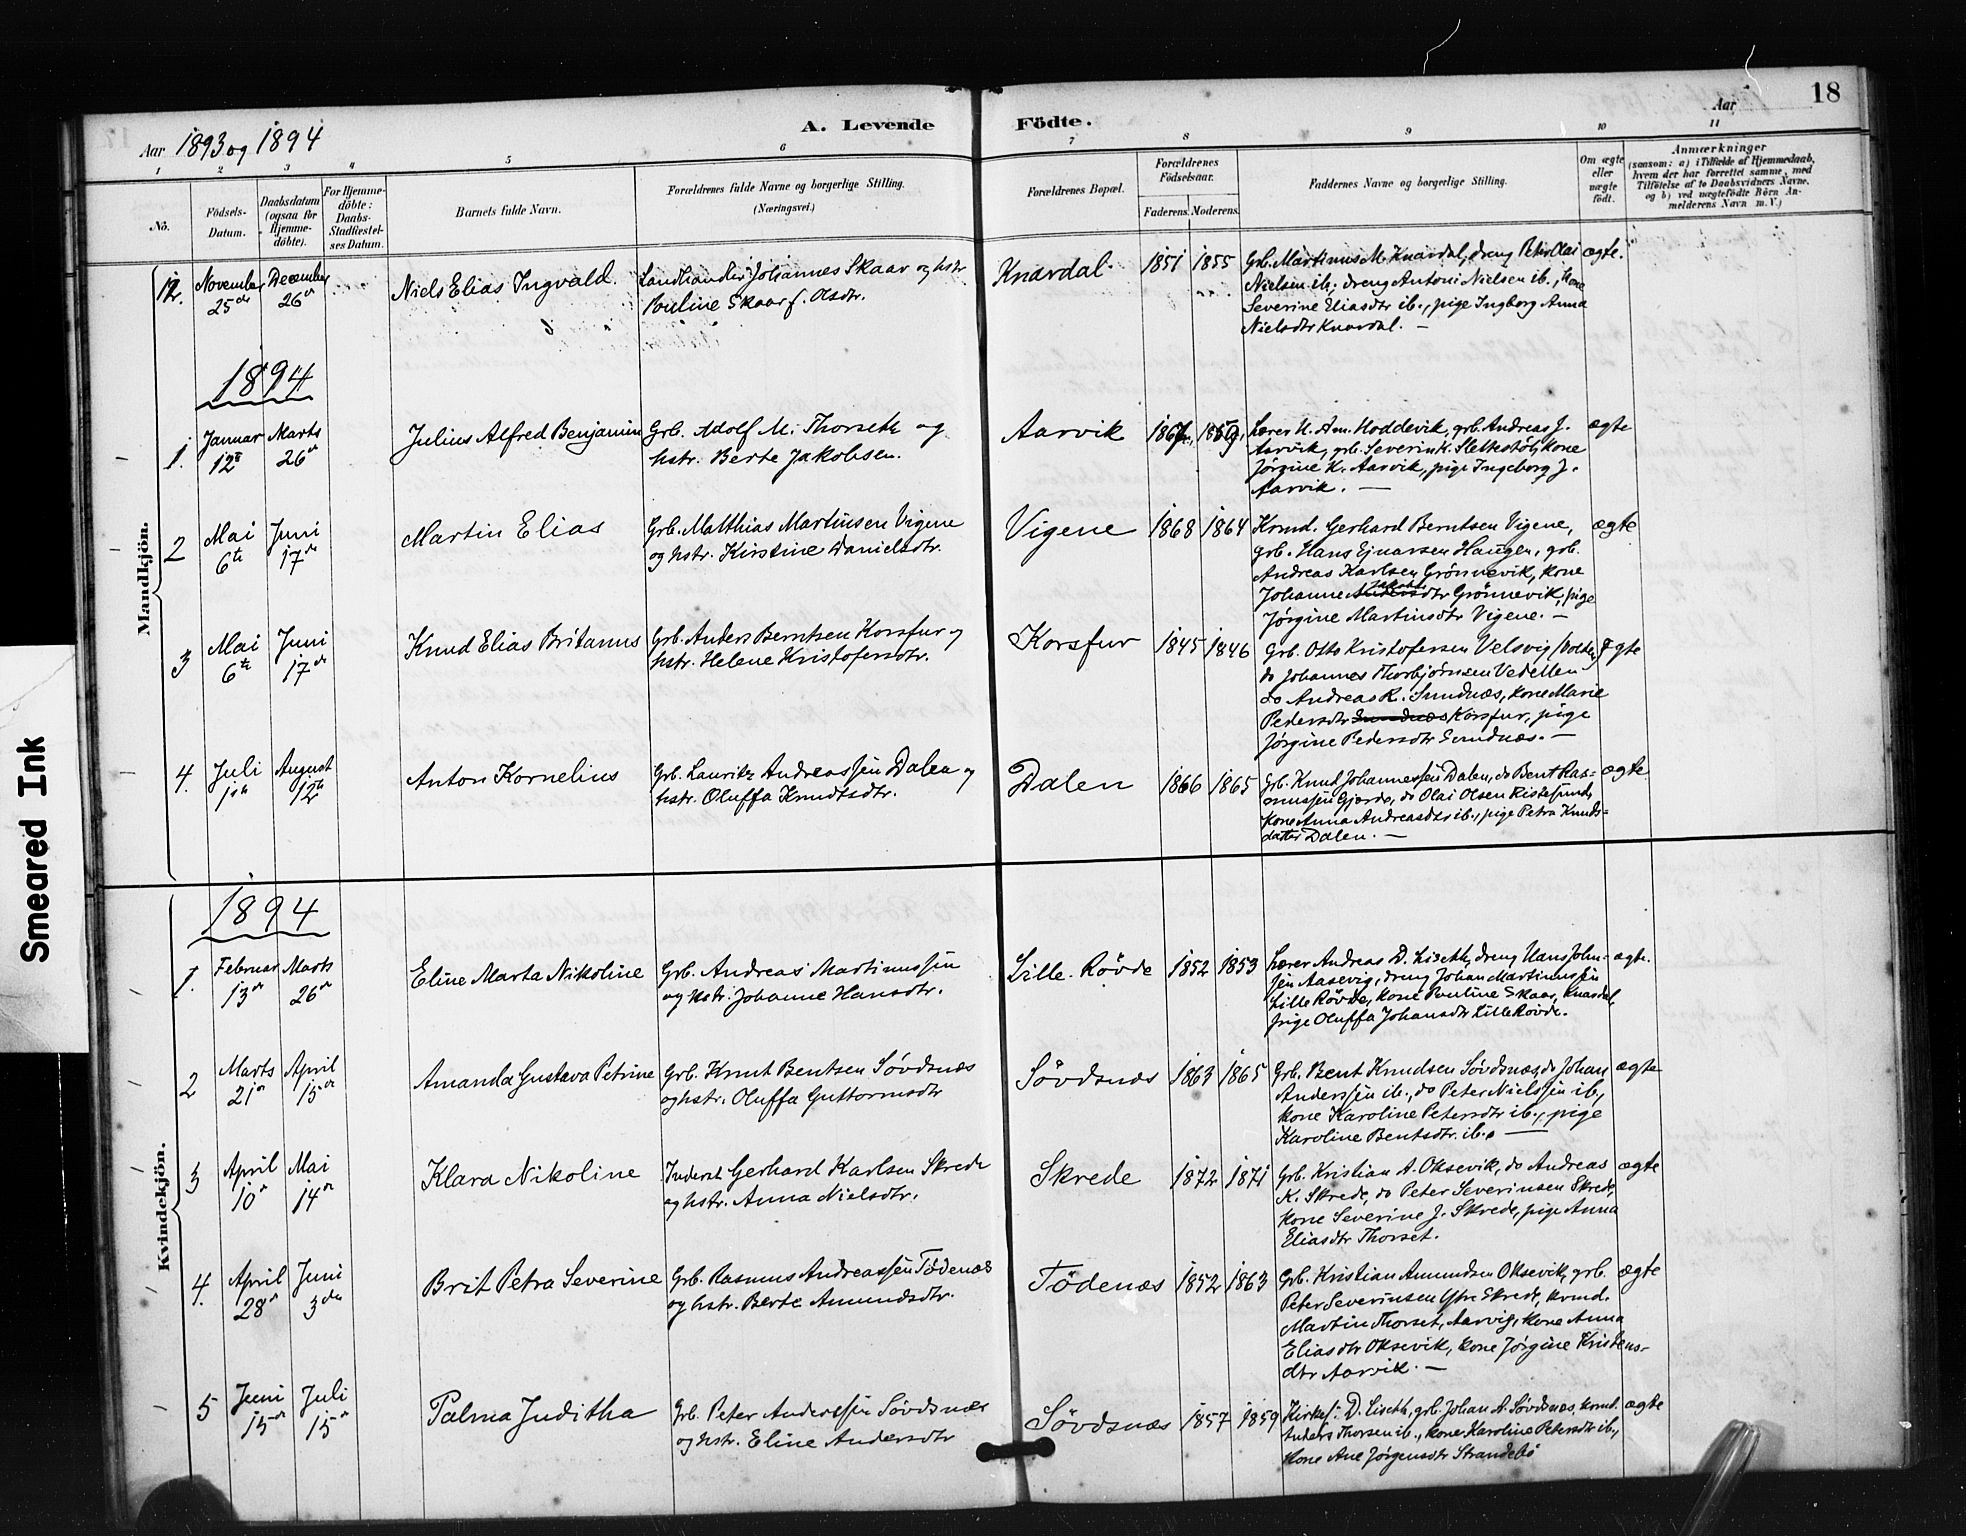 18
Aar 1893 og 1894
A. Levende Födte.
Aar
1 2 3 4 5 6 7 8 9 10 11
No.
Födsels-Datum.
Daabsdatum (ogsaa for Hjemme-döbte).
For Hjemme-döbte: Daabs-Stadfæstel-ses Datum.
Barnets fulde Navn.
Forældrenes fulde Navne og borgerlige Stilling. (Næringsvei.)
Forældrenes Bopæl.
Forældrenes Födselsaar.
Faderens. Moderens.
Faddernes Navne og borgerlige Stilling.
Om ægte eller uægte födt.
Anmærkninger
(saasom: a) i Tilfælde af Hjemmedaab,
hvem der har forrettet samme, med
Tilföielse af to Daabsvidners Navne,
og b) ved uægtefödte Börn An-
melderens Navn m. V.)
Mandkjön.
12. November 25de December 26de Niels Elias Ingvald. Landhandler Johannes Skaar og hstr.
Pauline Skaar f. Olsdtr.
Knardal. 1851 1855
Grb. Martinus M. Knardal, dreng Peter Olai
Nielsen ib., dreng Antoni Nielsen ib., kone
Severine Eliasdtr ib., pige Ingborg Anna
Nielsdtr Knardal. —
ægte.
1894
1. Januar 12te Marts 26de Julius Alfred Benjamin Grb. Adolf M. Thorseth og
hstr. Berte Jakobsen.
Aarvik
Lærer H. Am. Hoddevik, grb. Andreas J.
Aarvik, grb. Severin K. Slettestöl, kone
Jørgine K. Aarvik, pige Ingeborg J.
Aarvik. —
ægte
2 Mai 6te Juni 17de Martin Elias Grb. Matthias Martinsen Vigene
og hstr. Kirstine Danielsdtr.
Vigene 1868 1864
Krmd. Gerhard Berntsen Vigene,
grb. Hans Ejnarsen Haugen, grb.
Andreas Karlsen Grönnevik, kone
Johanne Jakobsdtr Grönnevik, pige
Jørgine Martinsdtr Vigene. —
ægte
3 Mai 6te Juni 17de Knud Elias Britanus Grb. Anders Berntsen Korsfur og
hstr. Helene Kristofersdtr.
Korsfur 1845 1846
Grb. Otto Kristofersen Velsvig
do Johannes Thorbjörnsen Vedellen
do Andreas R. Sundnæs, kone Marie
Pedersdtr Sundnæs Korsfur, pige
Jørgine Pedersdtr Sundnæs. —
Ægte
4. Juli 1ste August 12te Anton Kornelius Grb. Lauritz Andreassen Dalen og
hstr. Oluffa Knudtsdtr.
Dalen 1866 1865
Grb. Knud Johannessen Dalen, do Bent Ras-
mussen Gjerde, do Olai Olsen Ristesund,
kone Anna Andreasdtr ib., pige Petra Knuds-
datter Dalen. —
ægte
1894
Kvindekjön.
1. Februar 13de Marts 26de Eline Marta Nikoline Grb. Andreas Martinussen
og hstr. Johanne Hansdtr.
Lille-Rövde 1852 1853
Lærer Andreas D. Liseth, dreng Hans John-
sen Aasevig, dreng Johan Martinussen
Lille Rövde, kone Pauline Skaar, Knardal,
pige Oluffa Johansdtr Lille Rövde.
ægte.
2 Marts 21de April 15de Amanda Gustava Petrine Grb. Knut Bentsen Sövdsnæs
og hstr. Oluffa Guttormsdtr
Sövdsnæs 1863 1865
Grb. Bent Knudsen Sövdsnæs, do Johan
Anderssen ib., do Peter Nielssen ib.,
kone Karoline Petersdtr ib., pige
Karoline Bentsdtr. ib. —
ægte
3 April 10de Mai 14de Klara Nikoline Inderst Gerhard Karlsen Skrede
og hstr. Anna Nielsdtr.
Skrede 1872 1871
Grb. Kristian A. Oksevik, do Andreas
K. Skrede, do Peter Severinsen Skrede,
kone Severine J. Skrede, pige Anna
Eliasdtr Thorset.
ægte
4. April 28de Juni 3die Brit Petra Severine Grb. Rasmus Andreassen Tödenæs
og hstr. Berte Amundsdtr.
Tödenæs 1852 1863
Grb. Kristian Amundsen Oksevik, grb.
Peter Severinsen Ytre Skrede, krmd.
Martin Thorset, Aarvig, kone Anna
Eliasdtr Oksevik, kone Jørgine Kristens-
dtr Aarvik. —
ægte
5 Juni 15de Juli 15de Palma Juditha Grb. Peter Anderssen Sövdsnæs
og hstr. Eline Andersdtr
Sövdsnæs 1857 1859
Kirkes. D. Liseth, grb. Johan A. Sövdsnæs, krmd.
Anders Thorsen ib., kone Karoline Petersdtr ib.,
kone Ane Jørgensdtr Strandebö
ægte
Smeared Ink